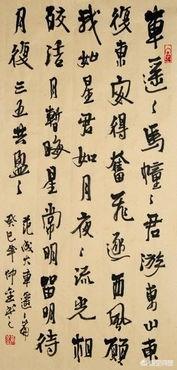 車遥〻馬憧〻君游東山東
復東安得奮飛逐西風願
我如星君如月夜〻流光相
皎洁月暫晦星常明留明待
月復三五共盈〻
范成大車遥〻篇
癸巳年